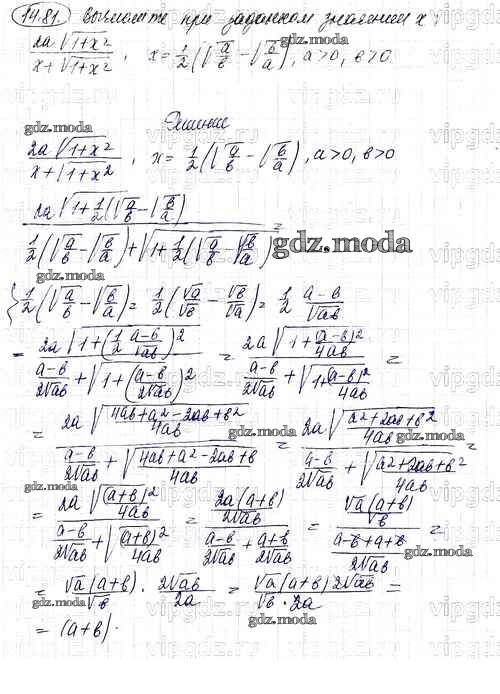 14.81. Вычислите при заданном значении x:
2a√(1+x²) / (x+√(1+x²)), x = 1/2 (√(a/b) − √(b/a)), a>0, b>0
Решение
gdz.moda
2a√(1+x²) / (x+√(1+x²)), x = 1/2 (√(a/b) − √(b/a)), a>0, b>0
gdz.moda
2a√(1+1/2(√(a/b) − √(b/a)) / (1/2(√(a/b) − √(b/a)) + √(1+1/2(√(a/b) − √(b/a))) =
gdz.moda
{1/2(√(a/b) − √(b/a)) = 1/2(√a/√b − √b/√a) = 1/2 (a−b)/√ab
= 2a√(1+(1/2 (a−b)/√ab)²) / ((a−b)/2√ab + √(1+((a−b)/2√ab)²)) = 2a√(1+(a−b)²/4ab) / ((a−b)/2√ab + √(1+(a−b)²/4ab)) =
gdz.moda
= 2a√((4ab+a²−2ab+b²)/4ab) / ((a−b)/2√ab + √((4ab+a²−2ab+b)/4ab)) = 2a√((a²+2ab+b²)/4ab) / ((a−b)/2√ab + √((a²+2ab+b²)/4ab)) =
gdz.moda
= 2a√((a+b)²/4ab) / ((a−b)/2√ab + √((a+b)²/4ab)) = (2a(a+b)/2√ab) / ((a−b)/2√ab + (a+b)/2√ab) = (√a(a+b)/√b) / ((a−b+a+b)/2√ab) =
gdz.moda
= √a(a+b)/√b · 2√ab/2a = √a(a+b)2√ab / √b·2a =
gdz.moda
= (a+b).